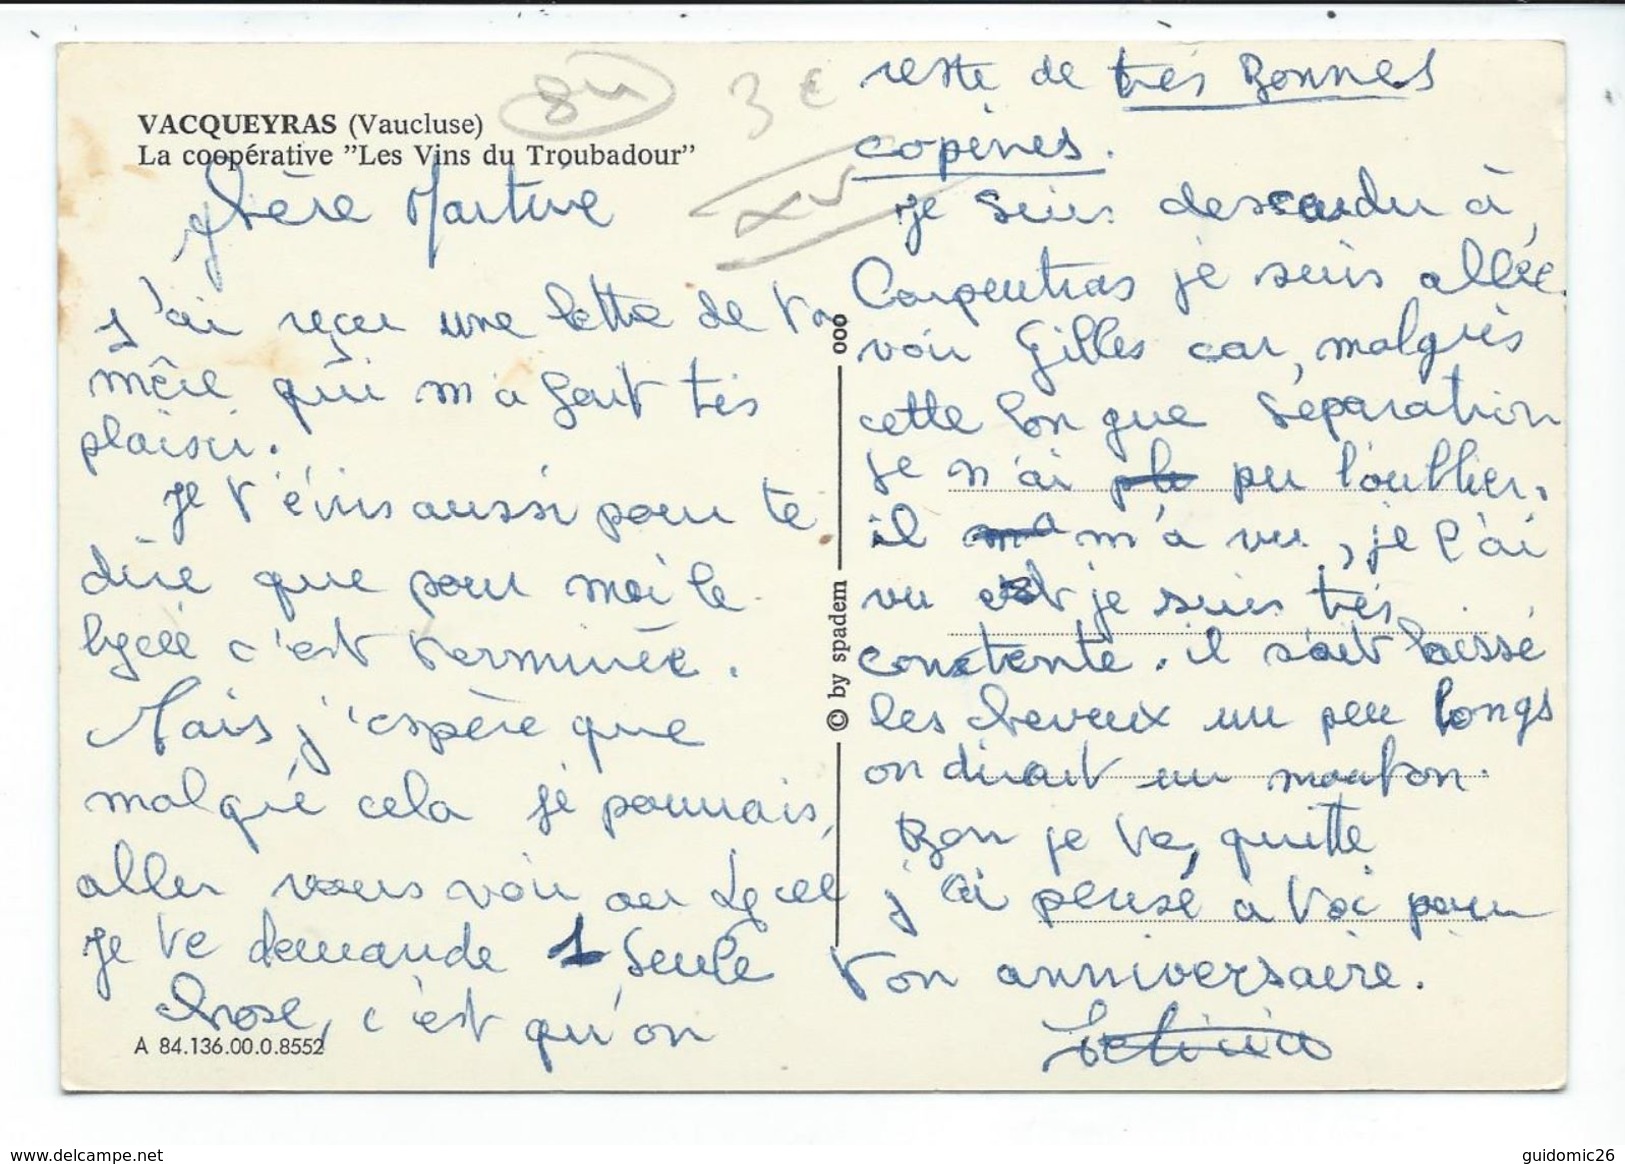 VACQUEYRAS (Vaucluse)
La coopérative "Les Vins du Troubadour"
84
3 €
Chère Martine
J'ai reçu une lettre de ta
mère qui m'a fait très
plaisir.
Je t'écris aussi pour te
dire que pour moi le
lycée c'est terminée.
Mais j'espère que
malgré cela je pourrais,
aller vous voir au Lycée
Je te demande 1 seule
chose, c'est qu'on
A 84.136.00.0.8552
© by spadem
ooo
reste de très Bonnes
copines.
Je suis descendu à
Carpentras je suis allée
voir Gilles car, malgrès
cette longue séparation
je n'ai pu l'oublier.
il m'a vu, je l'ai
vu et je suis très
contente. il s'ait laissé
les cheveux un peu longs
on dirait un mouton.
Bon je te quitte
j'ai pensé à toi pour
ton anniversaire.
www.delcampe.net
guidomic26